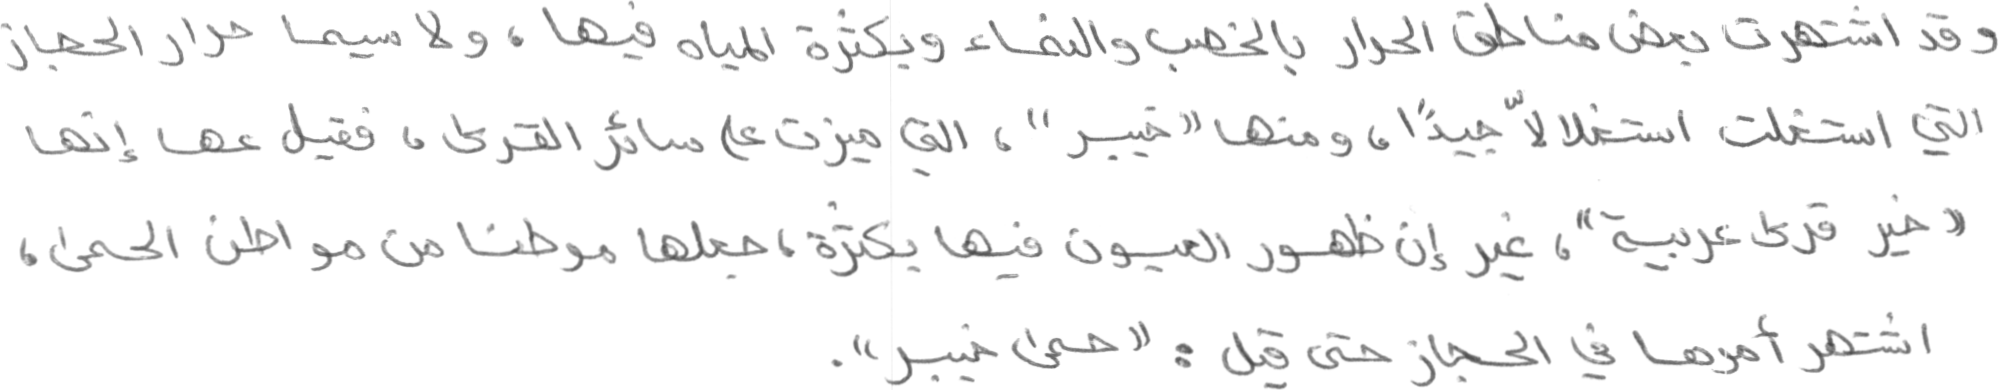 وقد اشتهرت بعض مناطق الحرار بالخصب والنماء وبكثرة المياه فيها، ولا سيما حرار الحجاز
التي استغلت استغلالاّ جيدًا، ومنها "خيبر"، التي ميزت على سائر القرى، فقيل عها إنها
"خير قرى عربية"، غير إن ظهور العيون فيها بكثرة، جعلها موطنا من مواطن الحمى،
اشتهر أمرها في الحجاز حتى قيل: "حمى خيبر".